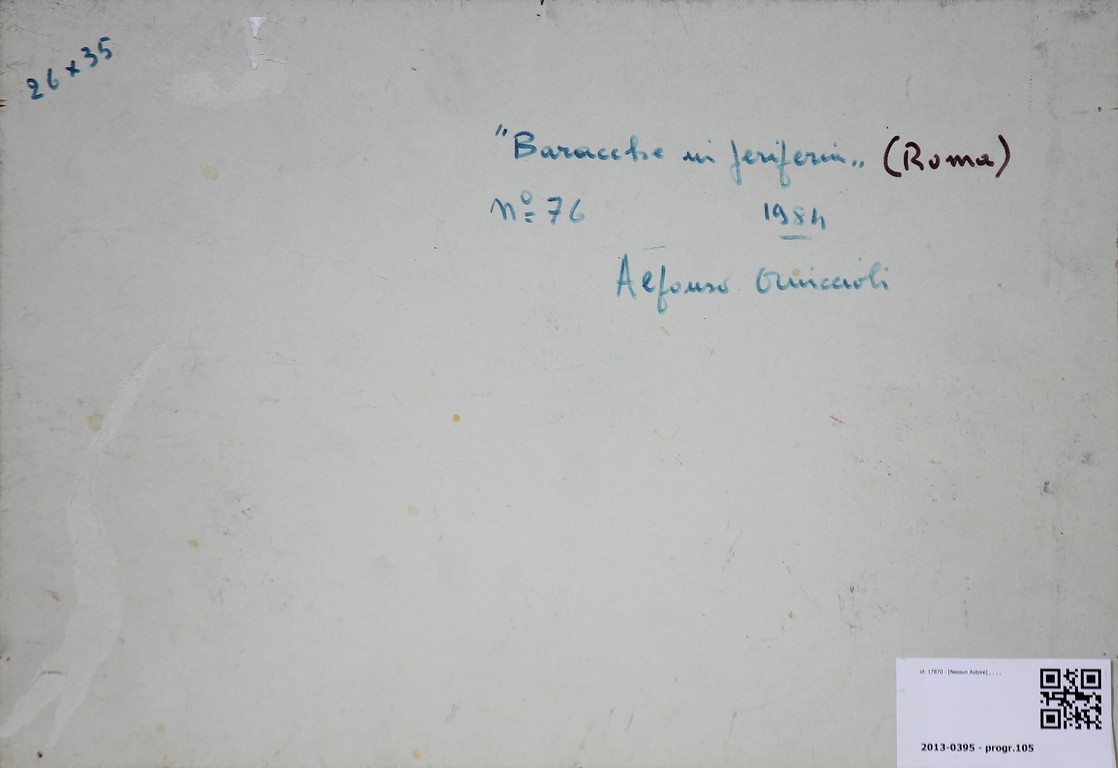 26 x 35
"Baracche in periferia„ (Roma)
Nº 76 1984
Alfonso
id: 17870 - [Nessun Autore] , , , ,
2013-0395 - progr.105